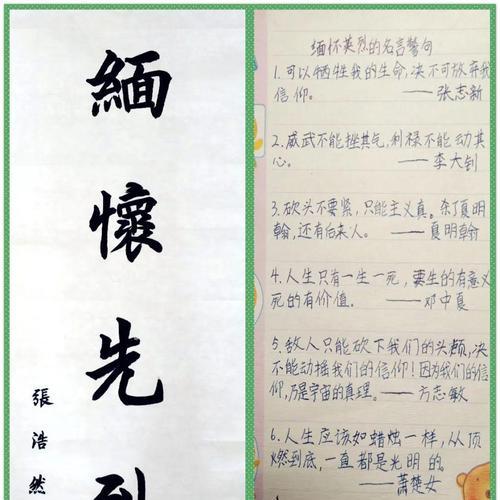 緬懷先
張浩然
缅怀英烈的名言警句
1.可以牺牲我的生命,决不可放弃我
信仰。——张志新
2.威武不能挫其气,利禄不能动其
心。——李大钊
3.砍头不要紧,只能主义真。杀了夏明
翰,还有后来人。——夏明翰
4.人生只有一生一死,要生的有意义
死的有价值。——邓中夏
5.敌人只能砍下我们的头颅,决
不能动摇我们的信仰!因为我们的信
仰,乃是宇宙的真理。——方志敏
6.人生应该如蜡烛一样,从顶
燃到底,一直都是光明的。
——萧楚女